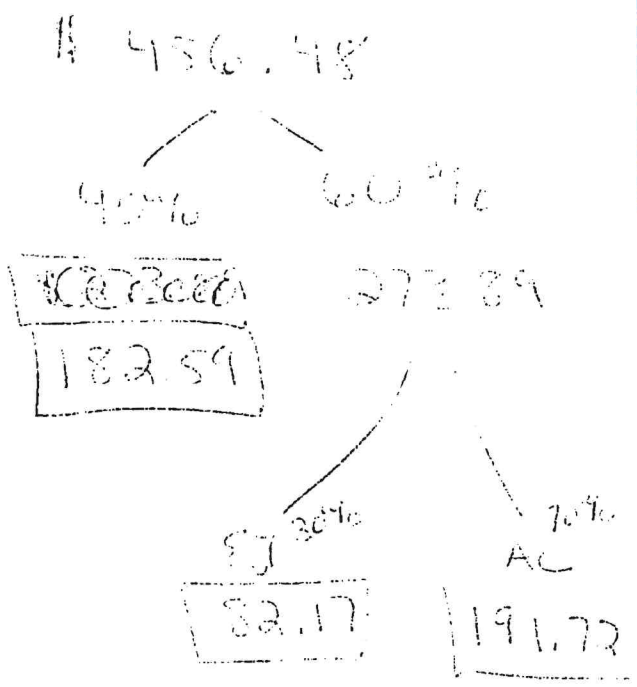 $ 456.48
40% 60%
273.89
182.59
30% 70%
AC
82.17 191.72